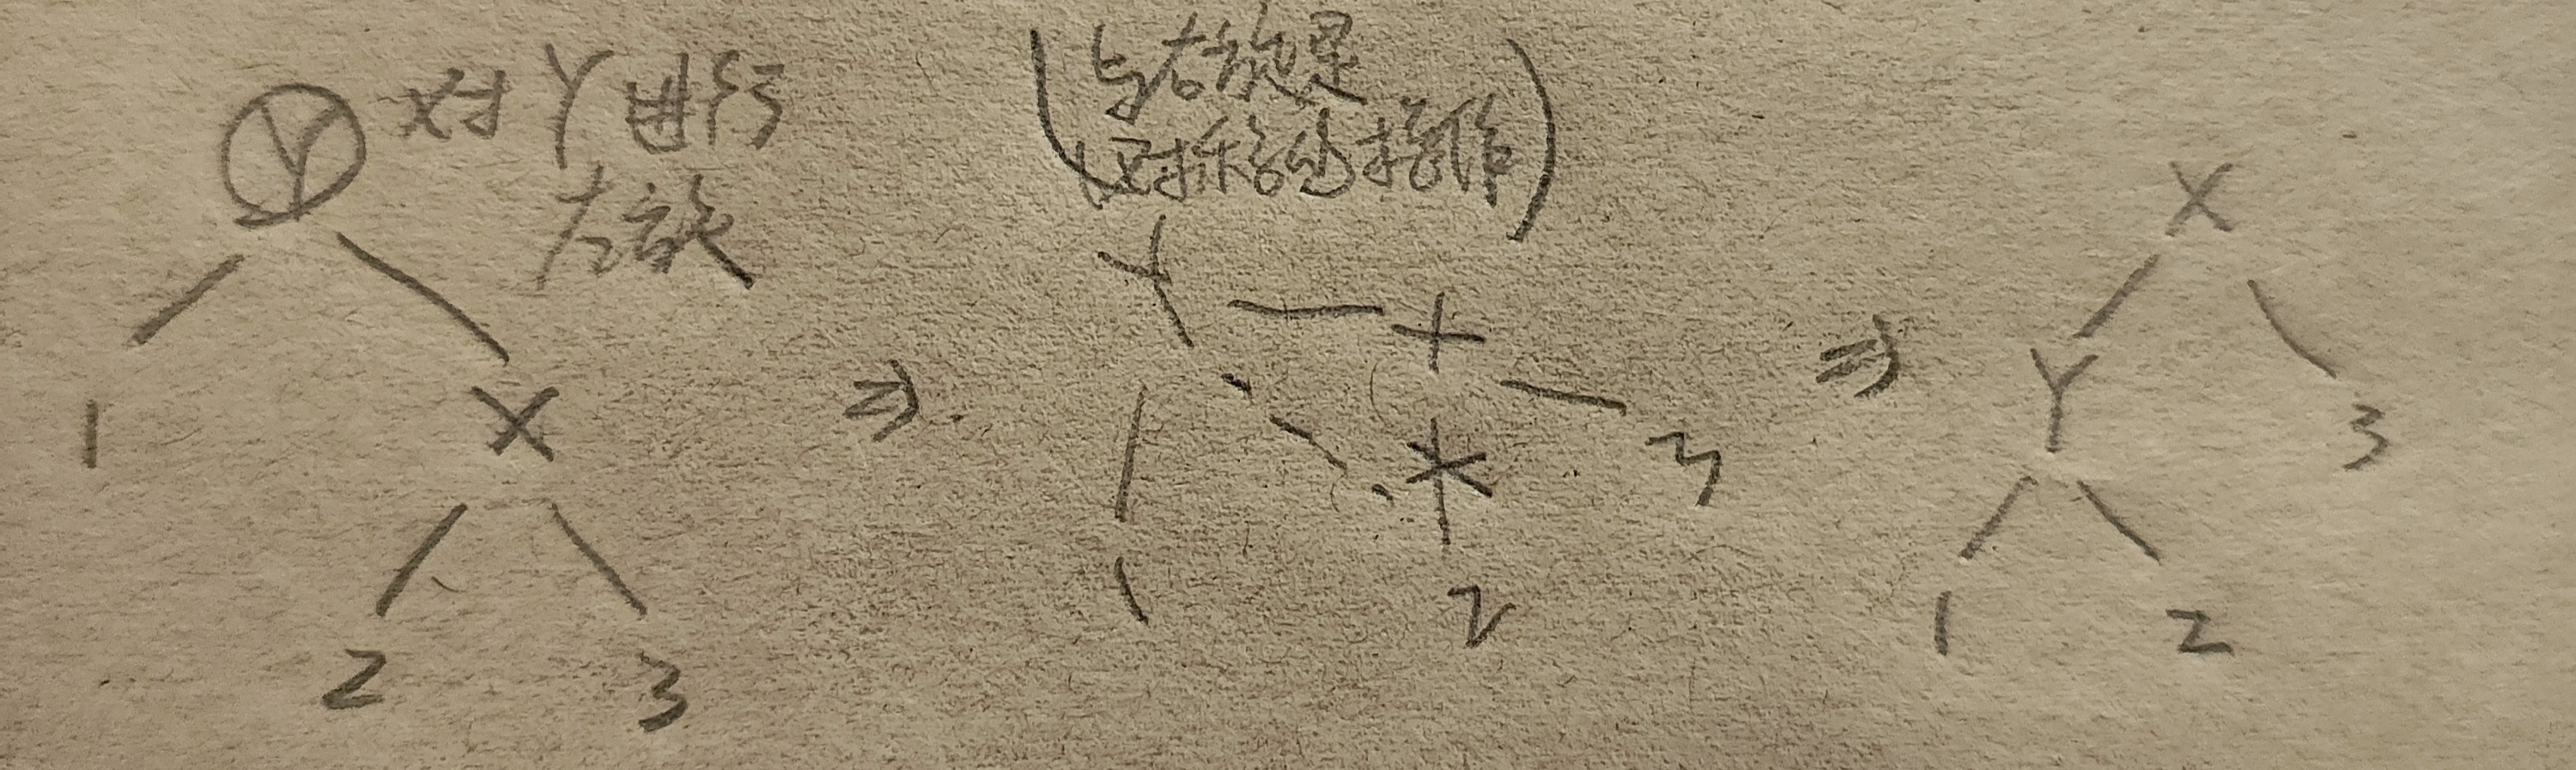 Y 对Y进行
左旋
(与右旋是
对称的操作)
1 X
2 3
⇒
Y — +
1 2 3
⇒
X
Y 3
1 2